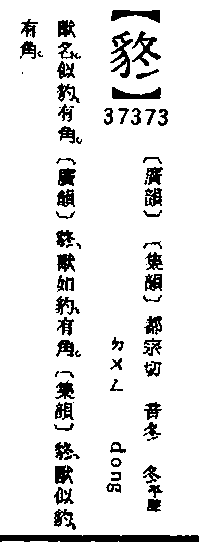 【䝦】
37373
〔廣韻〕〔集韻〕都宗切 音冬 冬平聲
ㄉㄨㄥ dong
獸名、似豹、有角。〔廣韻〕䝦、獸如豹、有角。〔集韻〕䝦、獸似豹、
有角。